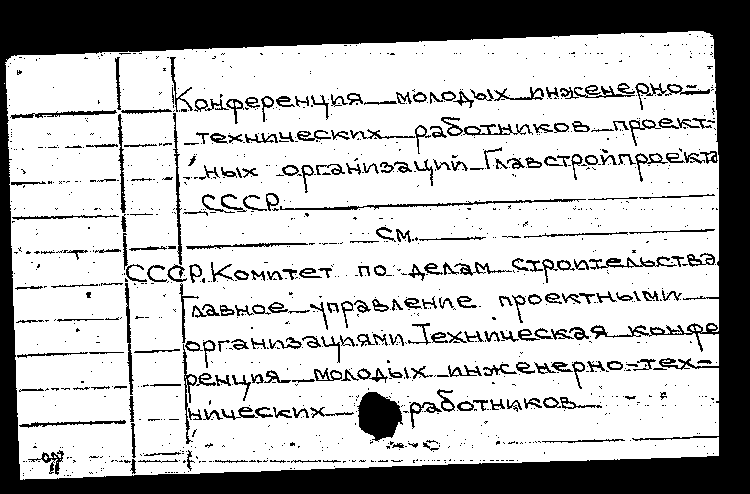 Конференция молодых инженерно-
технических работников проект-
ных организаций Главстройпроекта
СССР.
см.
СССР. Комитет по делам строительства.
Главное управление проектными
организациями. Техническая конфе
ренция молодых инженерно-тех-
нических работников